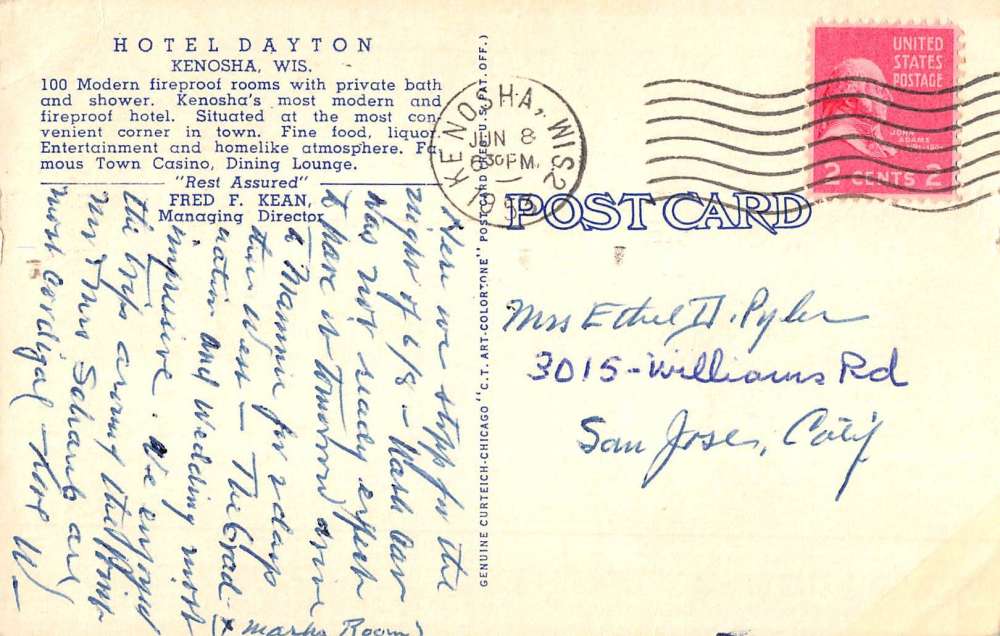 HOTEL DAYTON
KENOSHA, WIS.
100 Modern fireproof rooms with private bath
and shower. Kenosha's most modern and
fireproof hotel. Situated at the most con-
venient corner in town. Fine food, liquor
Entertainment and homelike atmosphere. Fa
mous Town Casino, Dining Lounge.
"Rest Assured"
FRED F. KEAN,
Managing Director
Here we stopp for the
night of 6/8 - Nash car
was not ready expect
to have it tomorrow drive
to for 2 days
then West - The Grad-
uation and Wedding most
impressive. We enjoyed
the trip arriving
Mr & Mrs Schaub are
most cordial - Love W-
Room)
GENUINE CURTEICH-CHICAGO "C.T. ART-COLORTONE" POST CARD (REG. U.S. PAT. OFF.)
KENOSHA, WIS.
JUN 8
6 30 PM
195
UNITED
STATES
POSTAGE
JOHN
ADAMS
2 CENTS 2
POST CARD
Mrs Ethel H. Pyler
3015 - Williams Rd
San Jose, Calif